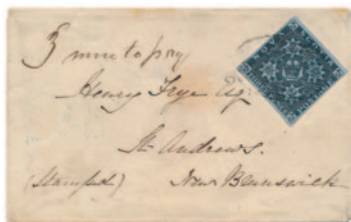 5 more to pay
Henry Frye Esq.
St. Andrews.
(Stamped) New Brunswick